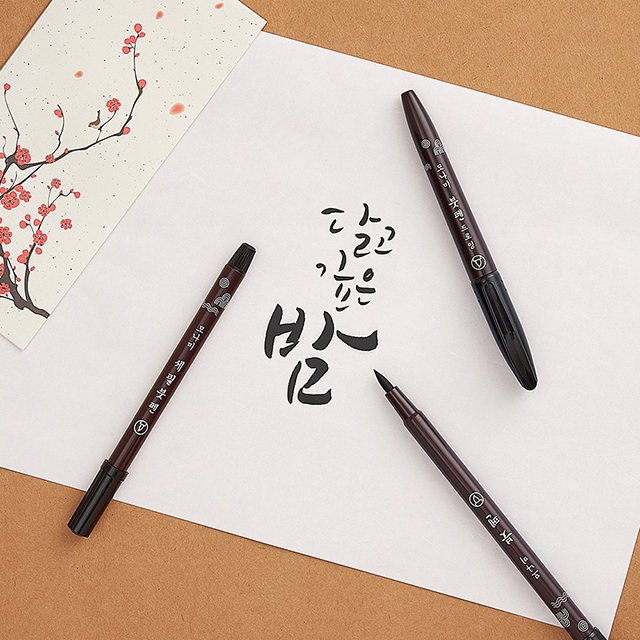 달고
깊은
밤
모나미 붓펜 드로잉
모나미 세필붓펜
모나미 붓펜